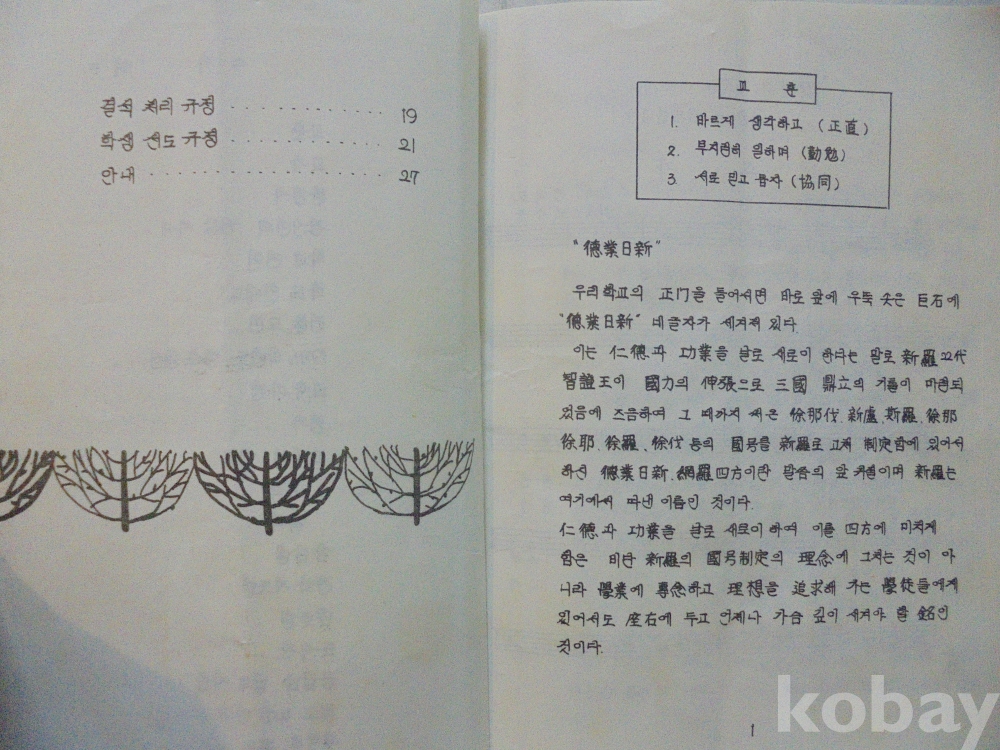 결석 처리 규정 ············ 19
학생 선도 규정 ············ 21
안내 ···················· 27
교 훈
1. 바르게 생각하고 (正直)
2. 부지런히 일하며 (勤勉)
3. 서로 믿고 돕자 (協同)
"德業日新"
우리학교의 正门을 들어서면 바로 앞에 우뚝 솟은 巨石에
"德業日新" 네글자가 새겨져 있다.
이는 仁德과 功業을 날로 새로이 한다는 말로 新羅 22代
智證王이 國力의 伸張으로 三國 鼎立의 기틀이 마련되
었음에 즈음하여 그 때까지 써온 徐那伐, 新盧, 斯羅, 徐那
徐耶, 徐羅, 徐伐 등의 國号를 新羅로 고쳐 制定함에 있어서
하신 德業日新, 網羅四方이란 말씀의 앞 구절이며 新羅는
여기에서 따낸 이름인 것이다.
仁德과 功業을 날로 새로이 하여 이를 四方에 미치게
함은 비단 新羅의 國号制定의 理念에 그치는 것이 아
니라 學業에 專念하고 理想을 追求해 가는 學徒들에게
있어서도 座右에 두고 언제나 가슴 깊이 새겨야 할 銘인
것이다.
1
kobay